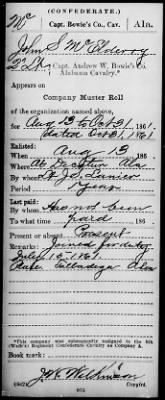 (CONFEDERATE.)
Mc Capt. Bowie's Co., Cav. Ala.
John S McElderry
2d Lt, Capt. Andrew W. Bowie's Co.
Alabama Cavalry.*
Appears on
Company Muster Roll
of the organization named above,
for Aug 13 to Oct 31, 1861.
dated Oct 31, 1861
Enlisted:
When Aug 13, 186
Where
By whom J. S. Lanier
Period Year
Last paid:
By whom Has not been
To what time paid, 186
Present or absent Present
Remarks: Joined for duty
July 15 1861.
Place Talladega Ala
*This company was subsequently assigned to the 8th
(Wade's) Regiment Confederate Cavalry as Company
Book mark:
(642)
Copyist.